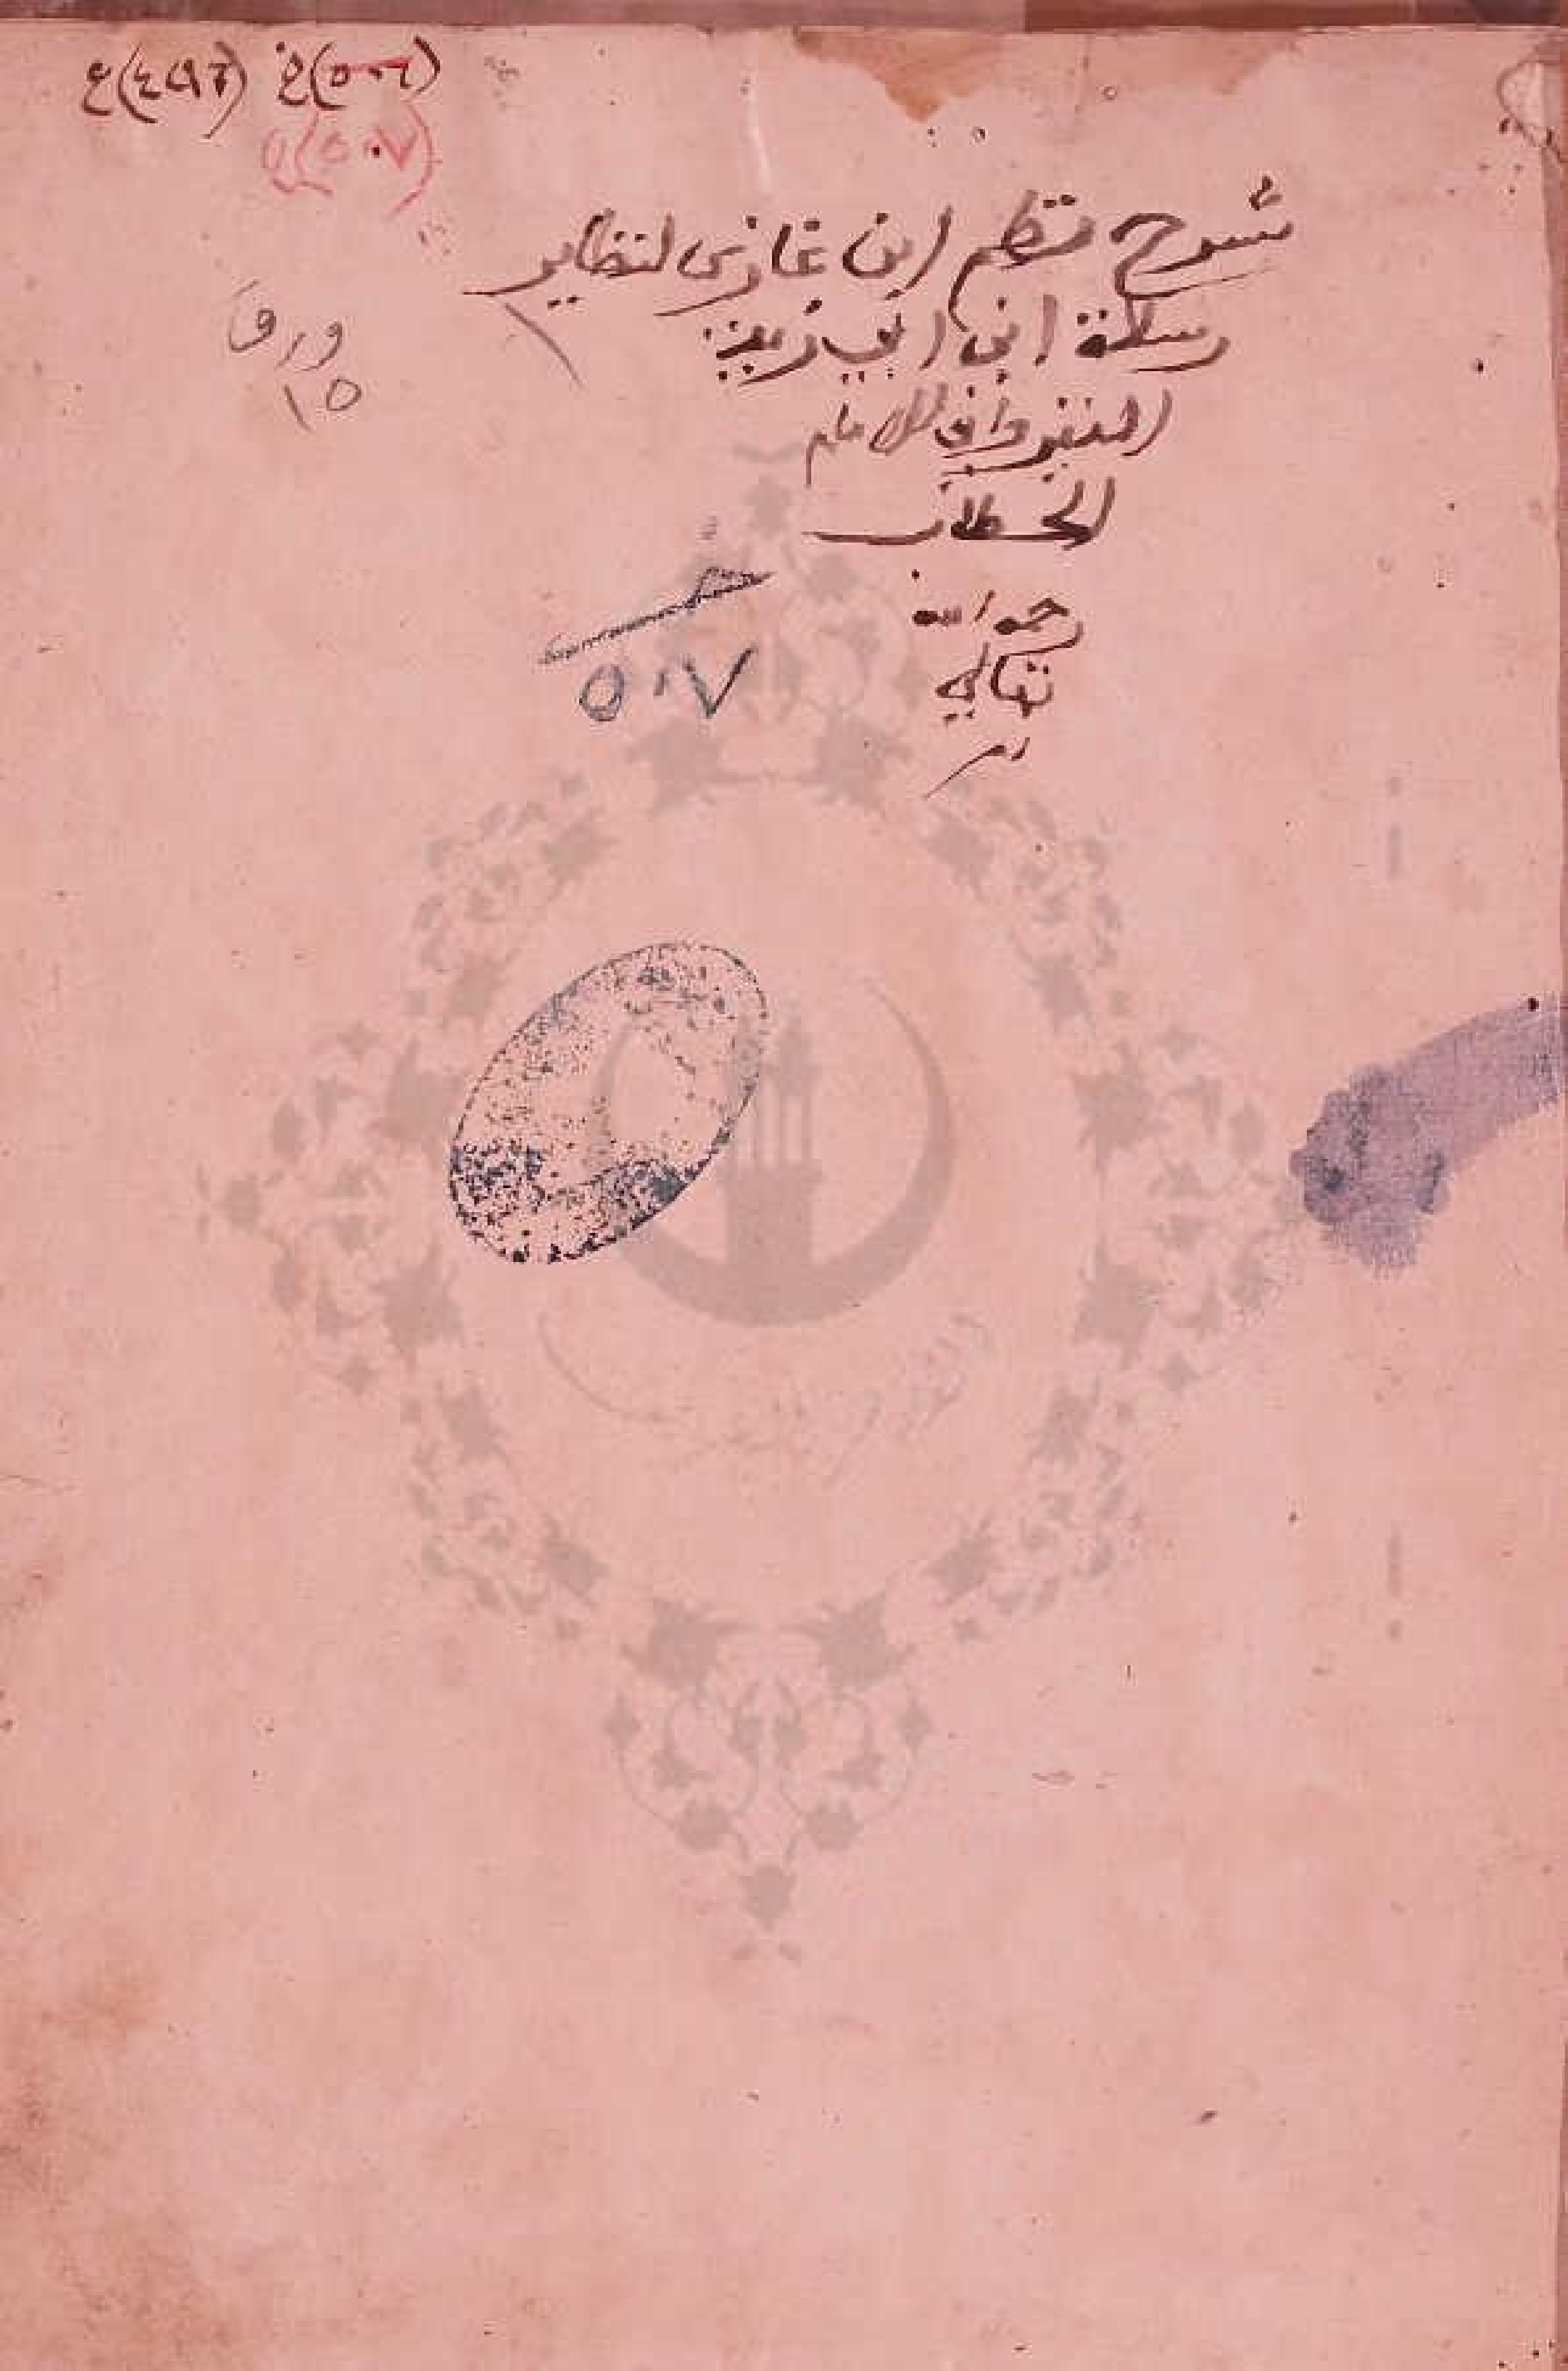 خ(٥٠٦) ع(٤٩٦)
(٥٠٧)
شرح نظم ابن غازي لنظاير
رسالة ابن ابي زيد
القيرواني للامام
الحطاب
رحمه الله
تعالى
ورق
١٥
٥٠٧